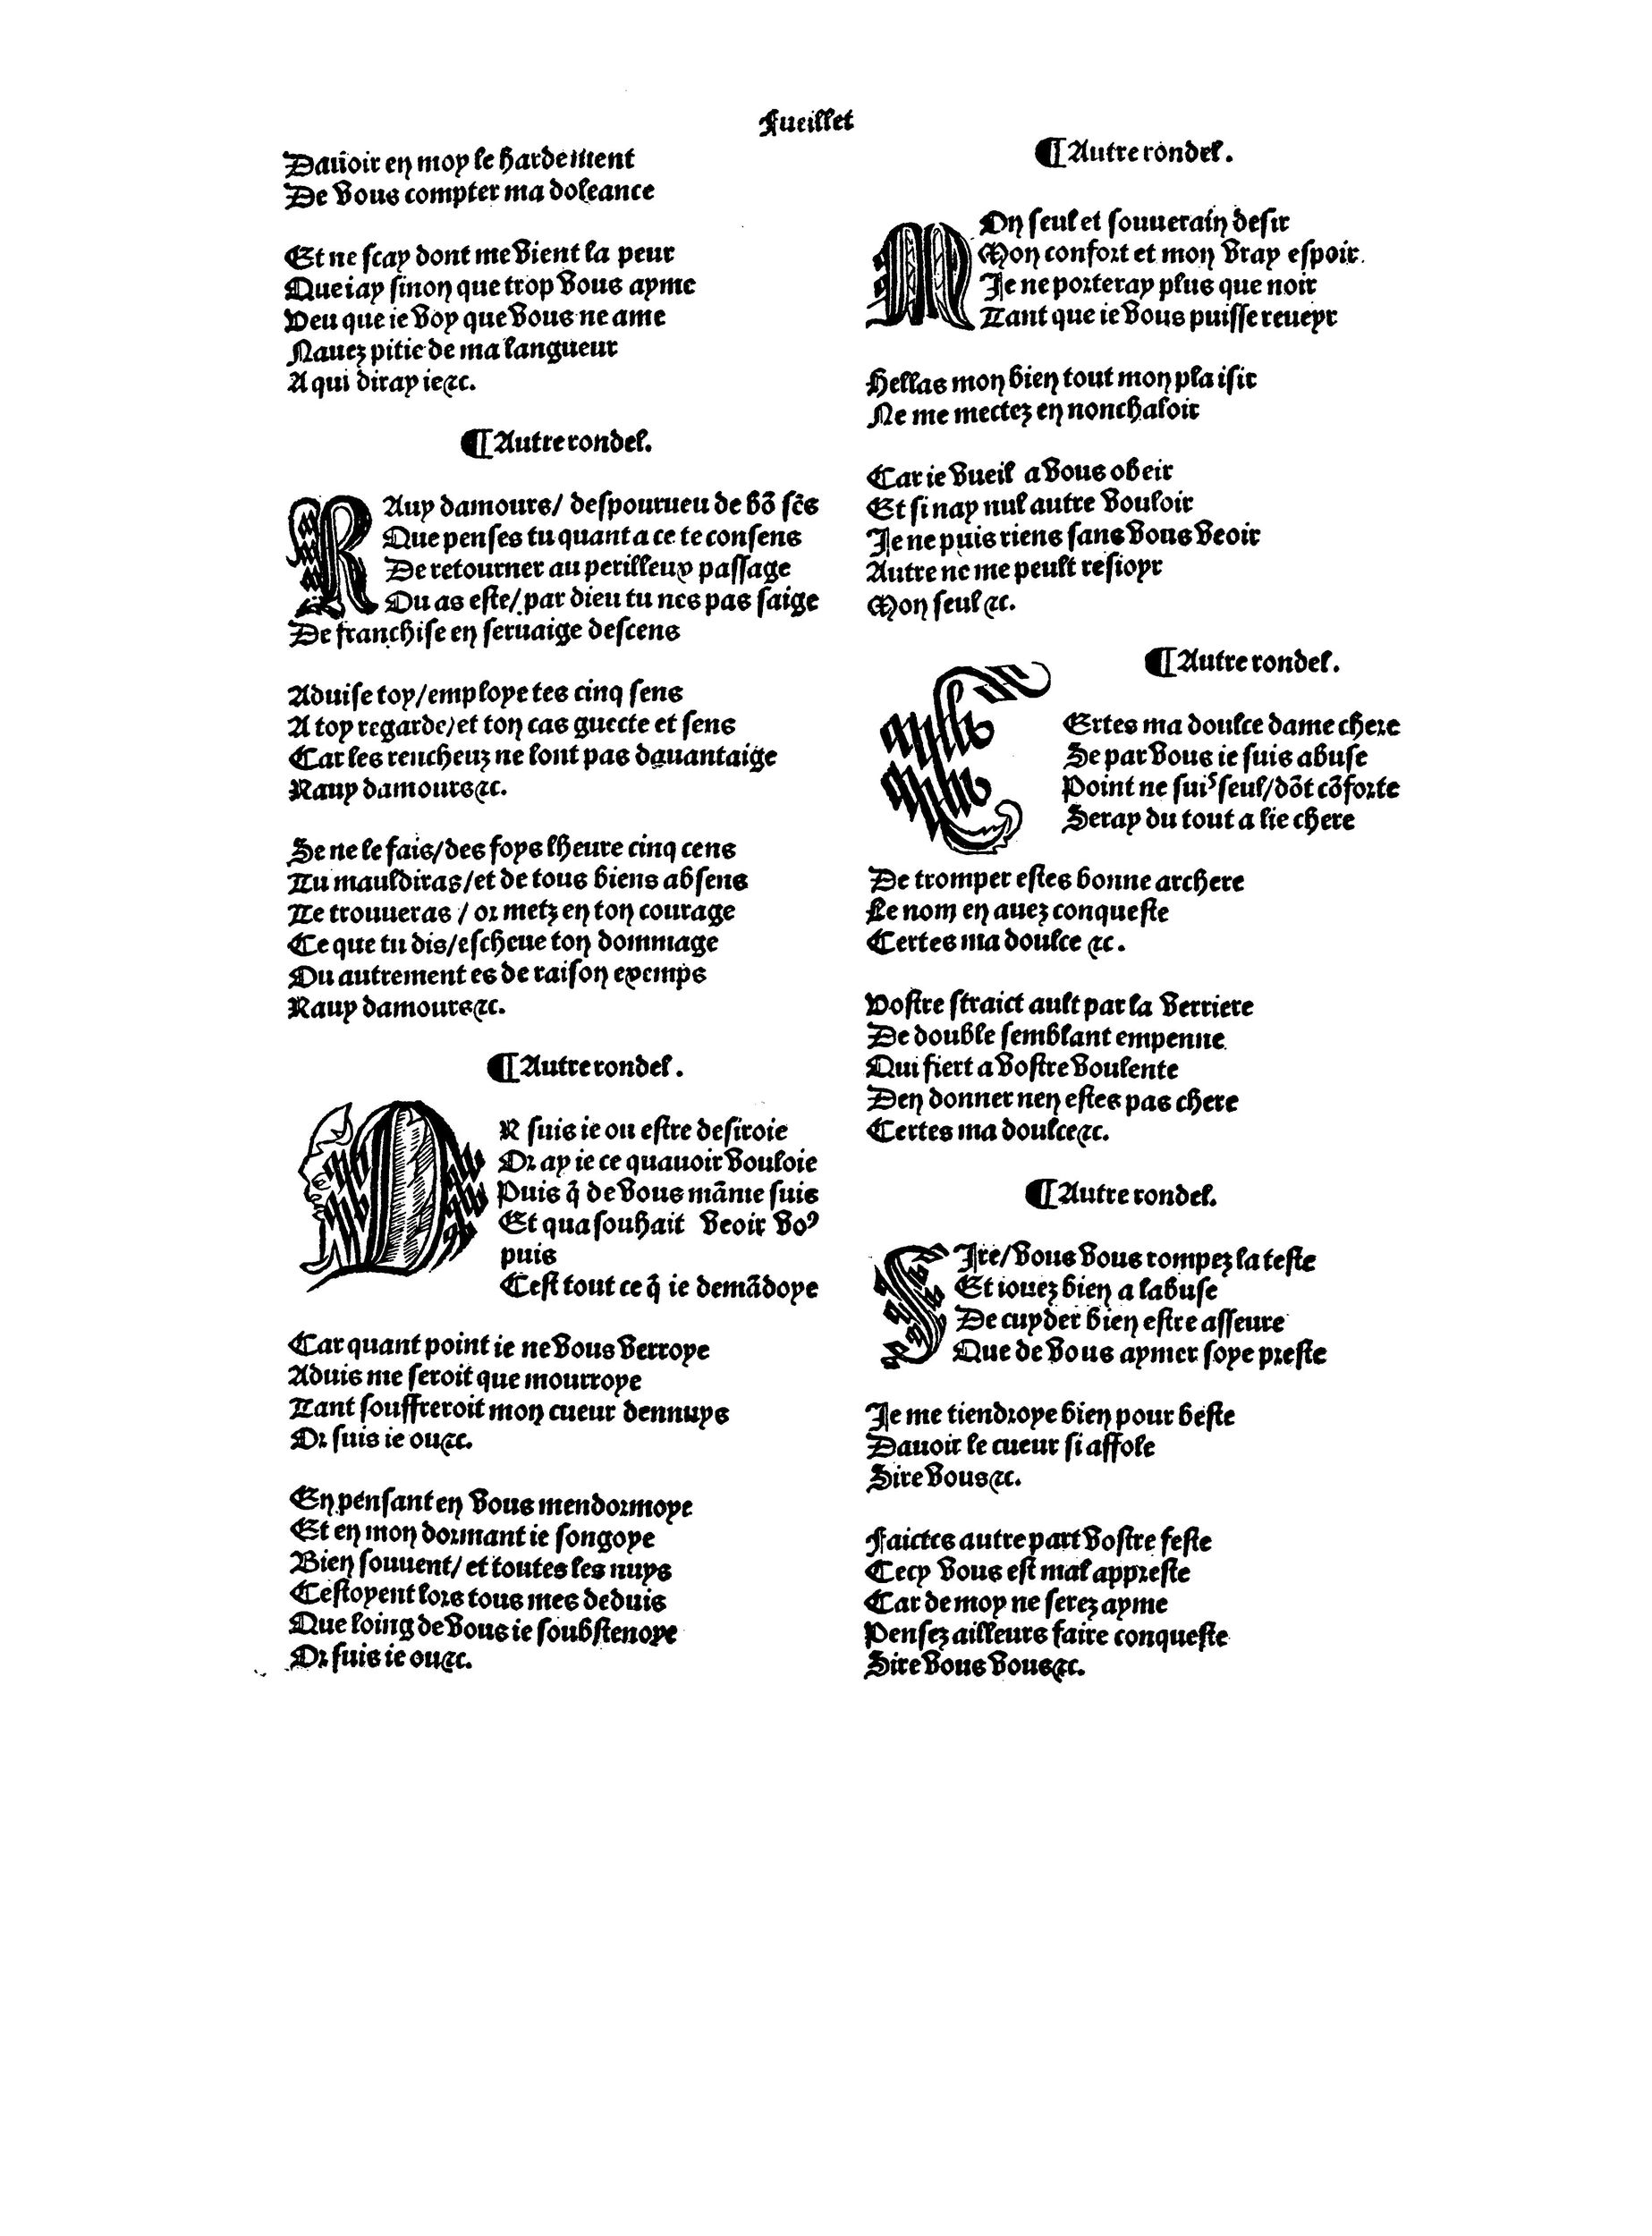 Fueillet
Dauoir en moy le hardement
De vous compter ma doleance
Et ne scay dont me vient la peur
Que iay sinon que trop vous ayme
Veu que ie voy que vous ne ame
Nauez pitie de ma langueur
A qui diray ie⁊c.
¶Autre rondel.
RAuy damours/ despourueu de bõ sẽs
Que penses tu quant a ce te consens
De retourner au perilleux passage
Ou as este/ par dieu tu nes pas saige
De franchise en seruaige descens
Aduise toy/employe tes cinq sens
A toy regarde/et ton cas guecte et sens
Car les rencheuz ne lont pas dauantaige
Rauy damours⁊c.
Se ne le fais/des foys lheure cinq cens
Tu mauldiras/et de tous biens absens
Te trouueras / or metz en ton courage
Ce que tu dis/escheue ton dommage
Ou autrement es de raison exemps
Rauy damours⁊c.
¶Autre rondel.
OR suis ie ou estre desiroie
Or ay ie ce quauoir vouloie
Puis q̃ de vous mãme suis
Et qua souhait veoir voꝰ
puis
Cest tout ce q̃ ie demãdoye
Car quant point ie ne vous verroye
Aduis me seroit que mourroye
Tant souffreroit mon cueur dennuys
Or suis ie ou⁊c.
En pensant en vous mendormoye
Et en mon dormant ie songoye
Bien souuent/ et toutes les nuys
Cestoyent lors tous mes deduis
Que loing de vous ie soubstenoye
Or suis ie ou⁊c.
¶Autre rondel.
MOn seul et souuerain desir
Mon confort et mon vray espoir.
Je ne porteray plus que noir
Tant que ie vous puisse reueyr
Hellas mon bien tout mon plaisir
Ne me mectez en nonchaloir
Car ie vueil a vous obeir
Et si nay nul autre vouloir
Je ne puis riens sans vous veoir
Autre ne me peult resioyr
Mon seul ⁊c.
¶Autre rondel.
CErtes ma doulce dame chere
Se par vous ie suis abuse
Point ne suiꝰ seul/dõt cõforte
Seray du tout a lie chere
De tromper estes bonne archere
Le nom en auez conqueste
Certes ma doulce ⁊c.
Vostre straict ault par la verriere
De double semblant empenne
Qui fiert a vostre voulente
Den donner nen estes pas chere
Certes ma doulce⁊c.
¶Autre rondel.
SIre/vous vous rompez la teste
Et iouez bien a labuse
De cuyder bien estre asseure
Que de vous aymer soye preste
Je me tiendroye bien pour beste
Dauoir le cueur si affole
Sire vous⁊c.
Faictes autre part vostre feste
Cecy vous est mal appreste
Car de moy ne serez ayme
Pensez ailleurs faire conqueste
Sire vous vous⁊c.